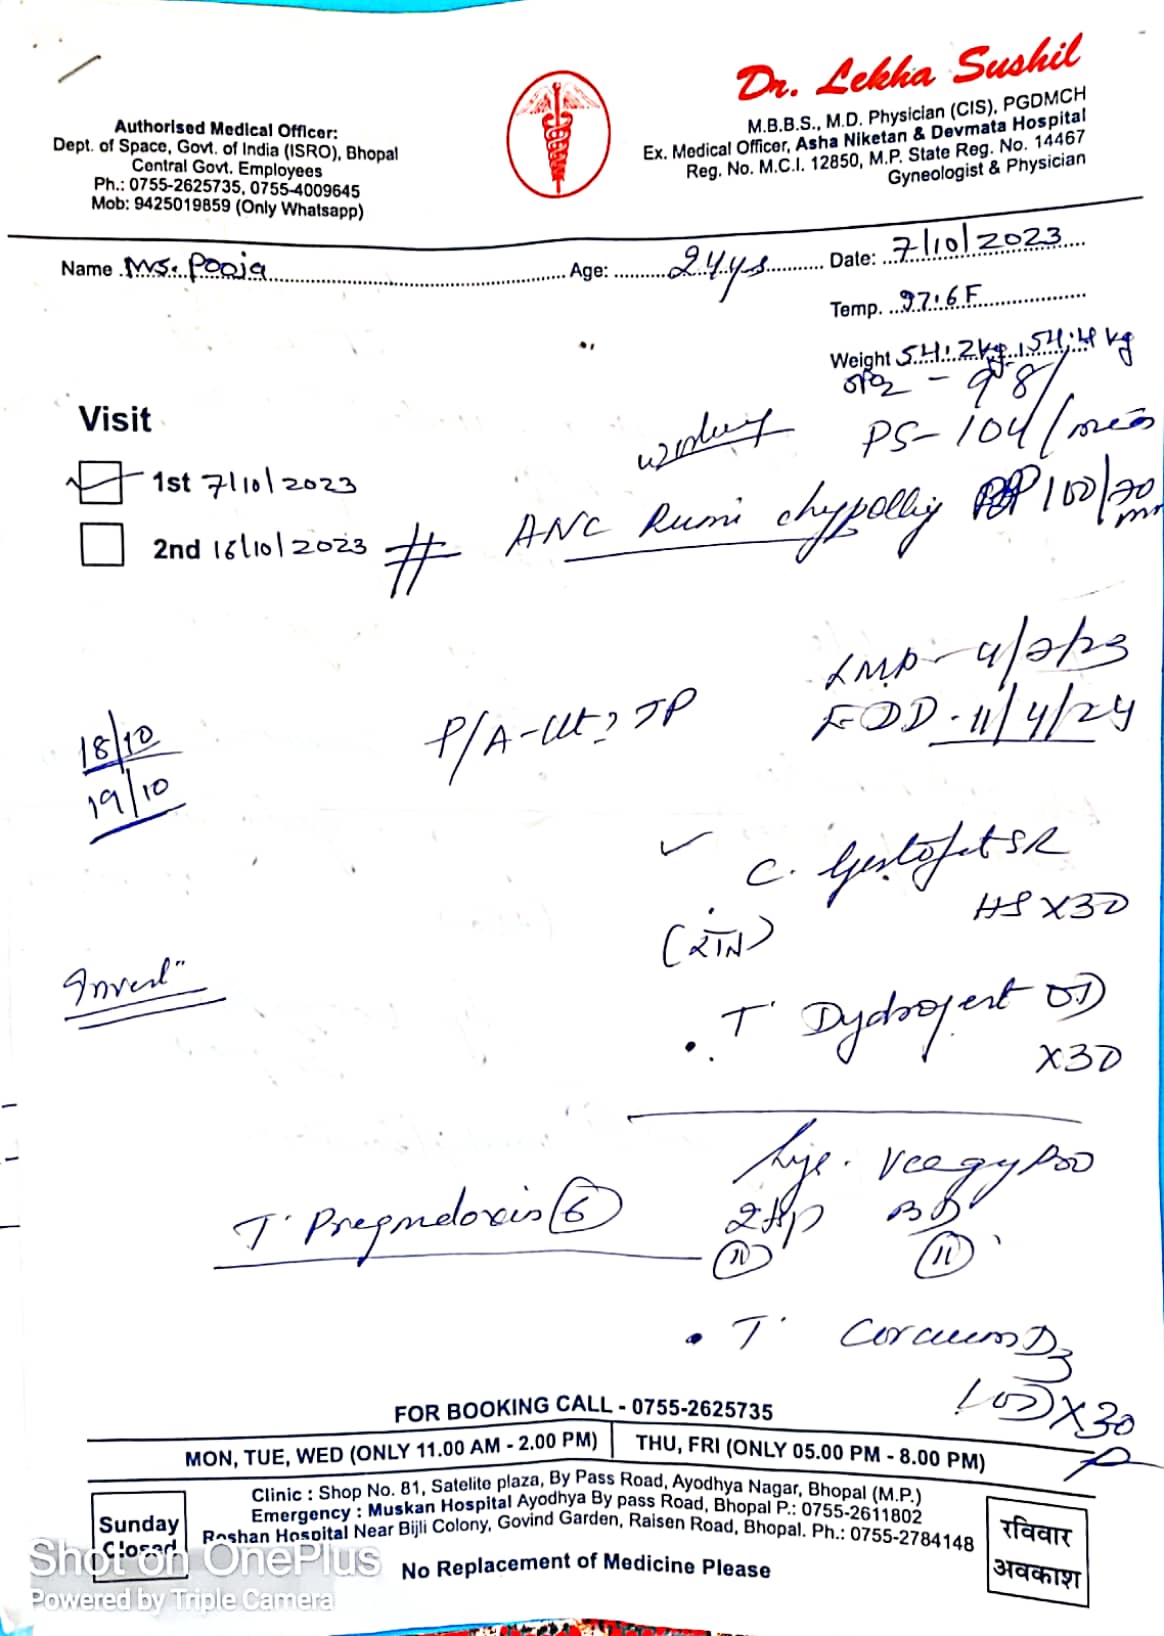 Dr. Lekha Sushil
M.B.B.S., M.D. Physician (CIS), PGDMCH
Ex. Medical Officer, Asha Niketan & Devmata Hospital
Reg. No. M.C.I. 12850, M.P. State Reg. No. 14467
Gyneologist & Physician
Authorised Medical Officer:
Dept. of Space, Govt. of India (ISRO), Bhopal
Central Govt. Employees
Ph.: 0755-2625735, 0755-4009645
Mob: 9425019859 (Only Whatsapp)
Name Mrs. Pooja Age: 24ys Date: 7/10/2023
Temp. 97.6 F
Weight 54.2kg, 54.4 kg
SPO2 - 98/
PS- 104/
Visit
1st 7/10/2023
2nd 16/10/2023
# ANC BP 100/70
LMP - 4/7/23
EDD - 11/4/24
P/A - Ut
18/10
19/10
C. Gestofit SR
HS X30
Invest"
T. Dydrogest OD
X30
BD
T.
D3
X30
FOR BOOKING CALL - 0755-2625735
MON, TUE, WED (ONLY 11.00 AM - 2.00 PM) THU, FRI (ONLY 05.00 PM - 8.00 PM)
Clinic : Shop No. 81, Satelite plaza, By Pass Road, Ayodhya Nagar, Bhopal (M.P.)
Emergency : Muskan Hospital Ayodhya By pass Road, Bhopal P.: 0755-2611802
Roshan Hospital Near Bijli Colony, Govind Garden, Raisen Road, Bhopal. Ph.: 0755-2784148
No Replacement of Medicine Please
Sunday
Closed
रविवार
अवकाश
Shot on OnePlus
Powered by Triple Camera